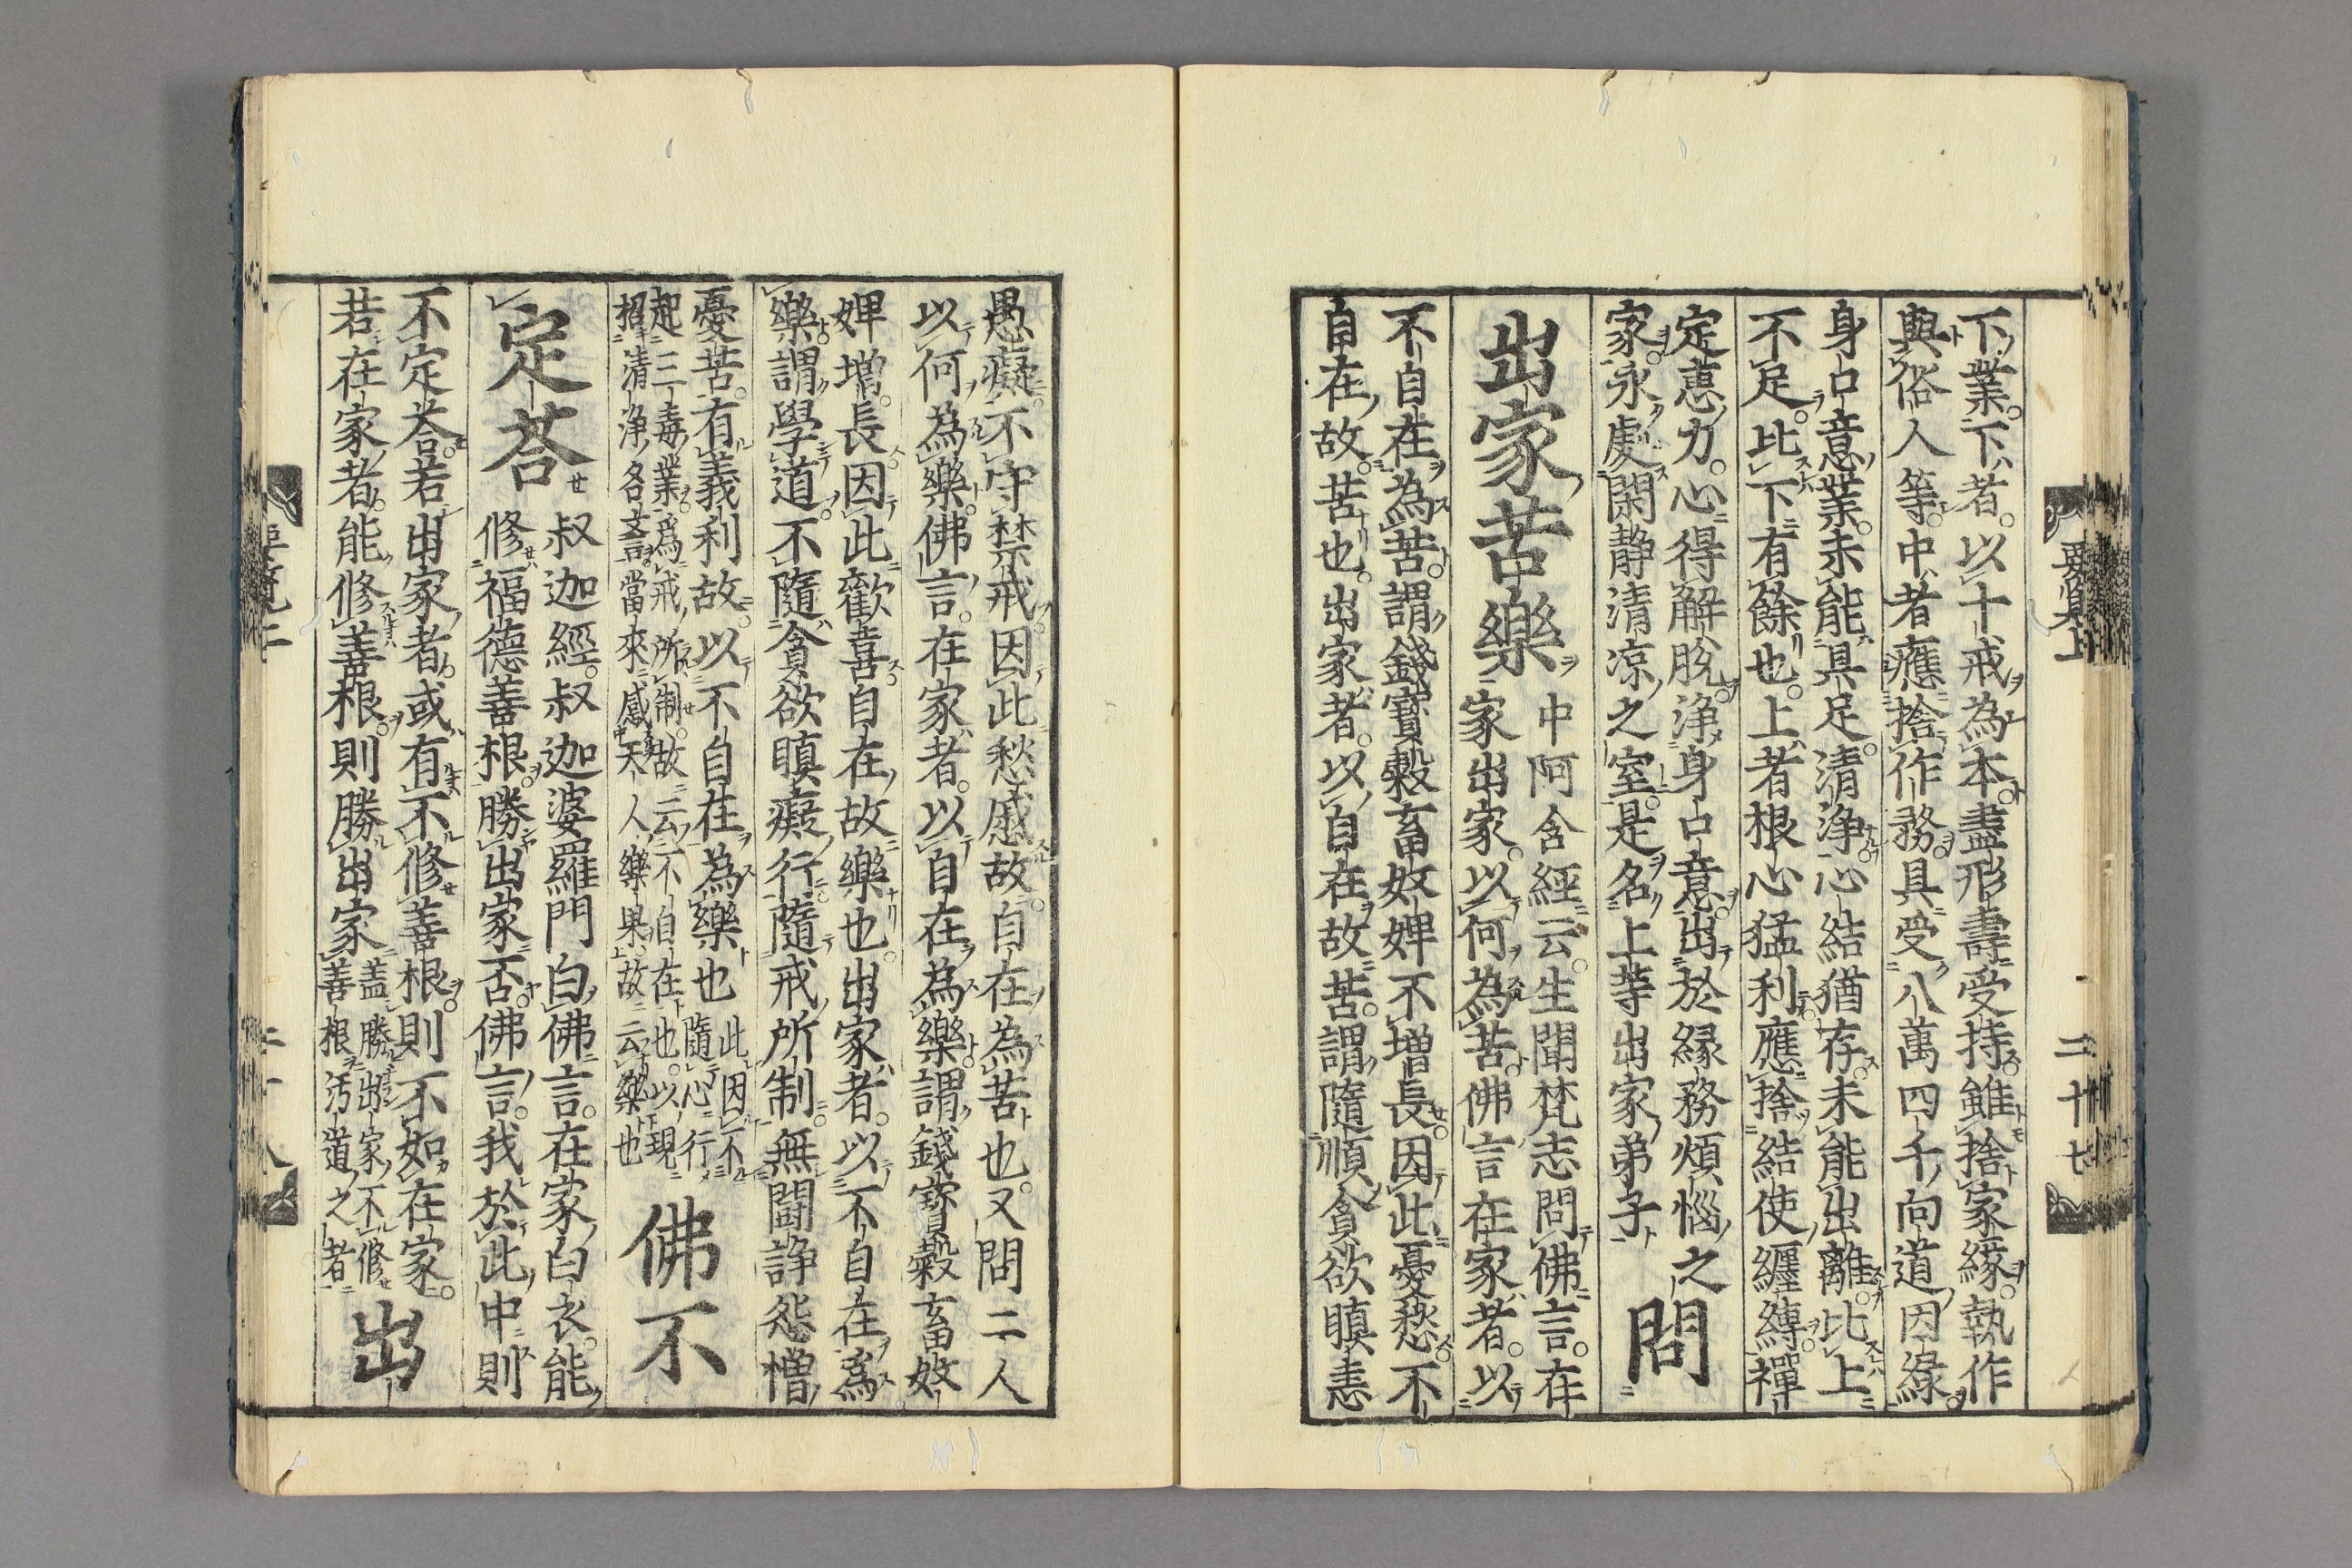 下業。下者。以十戒為本。盡形壽受持。雖捨家緣。執作
與俗人等。中者應捨作務。具受八萬四千向道因緣。
身口意業。未能具足清淨。心結猶存。未能出離。比上
不足。比下有餘也。上者根心猛利。應捨結使纏縛。禪
定惠力。心得解脫。淨身口意。出於緣務煩惱之
家。永處閑靜清凉之室。是名上等出家弟子
問
出家苦樂
中阿含經云。生聞梵志問佛言。在
家出家。以何為苦。佛言在家者。以
不自在為苦。謂錢寶穀畜奴婢不增長。因此憂愁。不
自在故。苦也。出家者。以自在故苦。謂隨順貪欲瞋恚
愚癡。不守禁戒。因此愁慼故。自在為苦也。又問二人
以何為樂。佛言。在家者。以自在為樂。謂錢寶穀畜奴
婢增長。因此歡喜。自在故樂也。出家者。以不自在為
樂。謂學道。不隨貪欲瞋癡行。隨戒所制。無鬪諍怨憎
憂苦。有義利故。以不自在為樂也
此因不
隨心行
起三毒業。爲戒所制。故云不自在也。以現
招清淨名言。當來感天人樂果。故云樂也
佛不
定荅
叔迦經。叔迦婆羅門白佛言。在家白衣。能
修福德善根。勝出家否。佛言。我於此中則
不定荅。若出家者。或有不修善根。則不如在家。
若在家者。能修善根。則勝出家
盖勝出家不修
善根汚道之者
出
要覽上
二十七